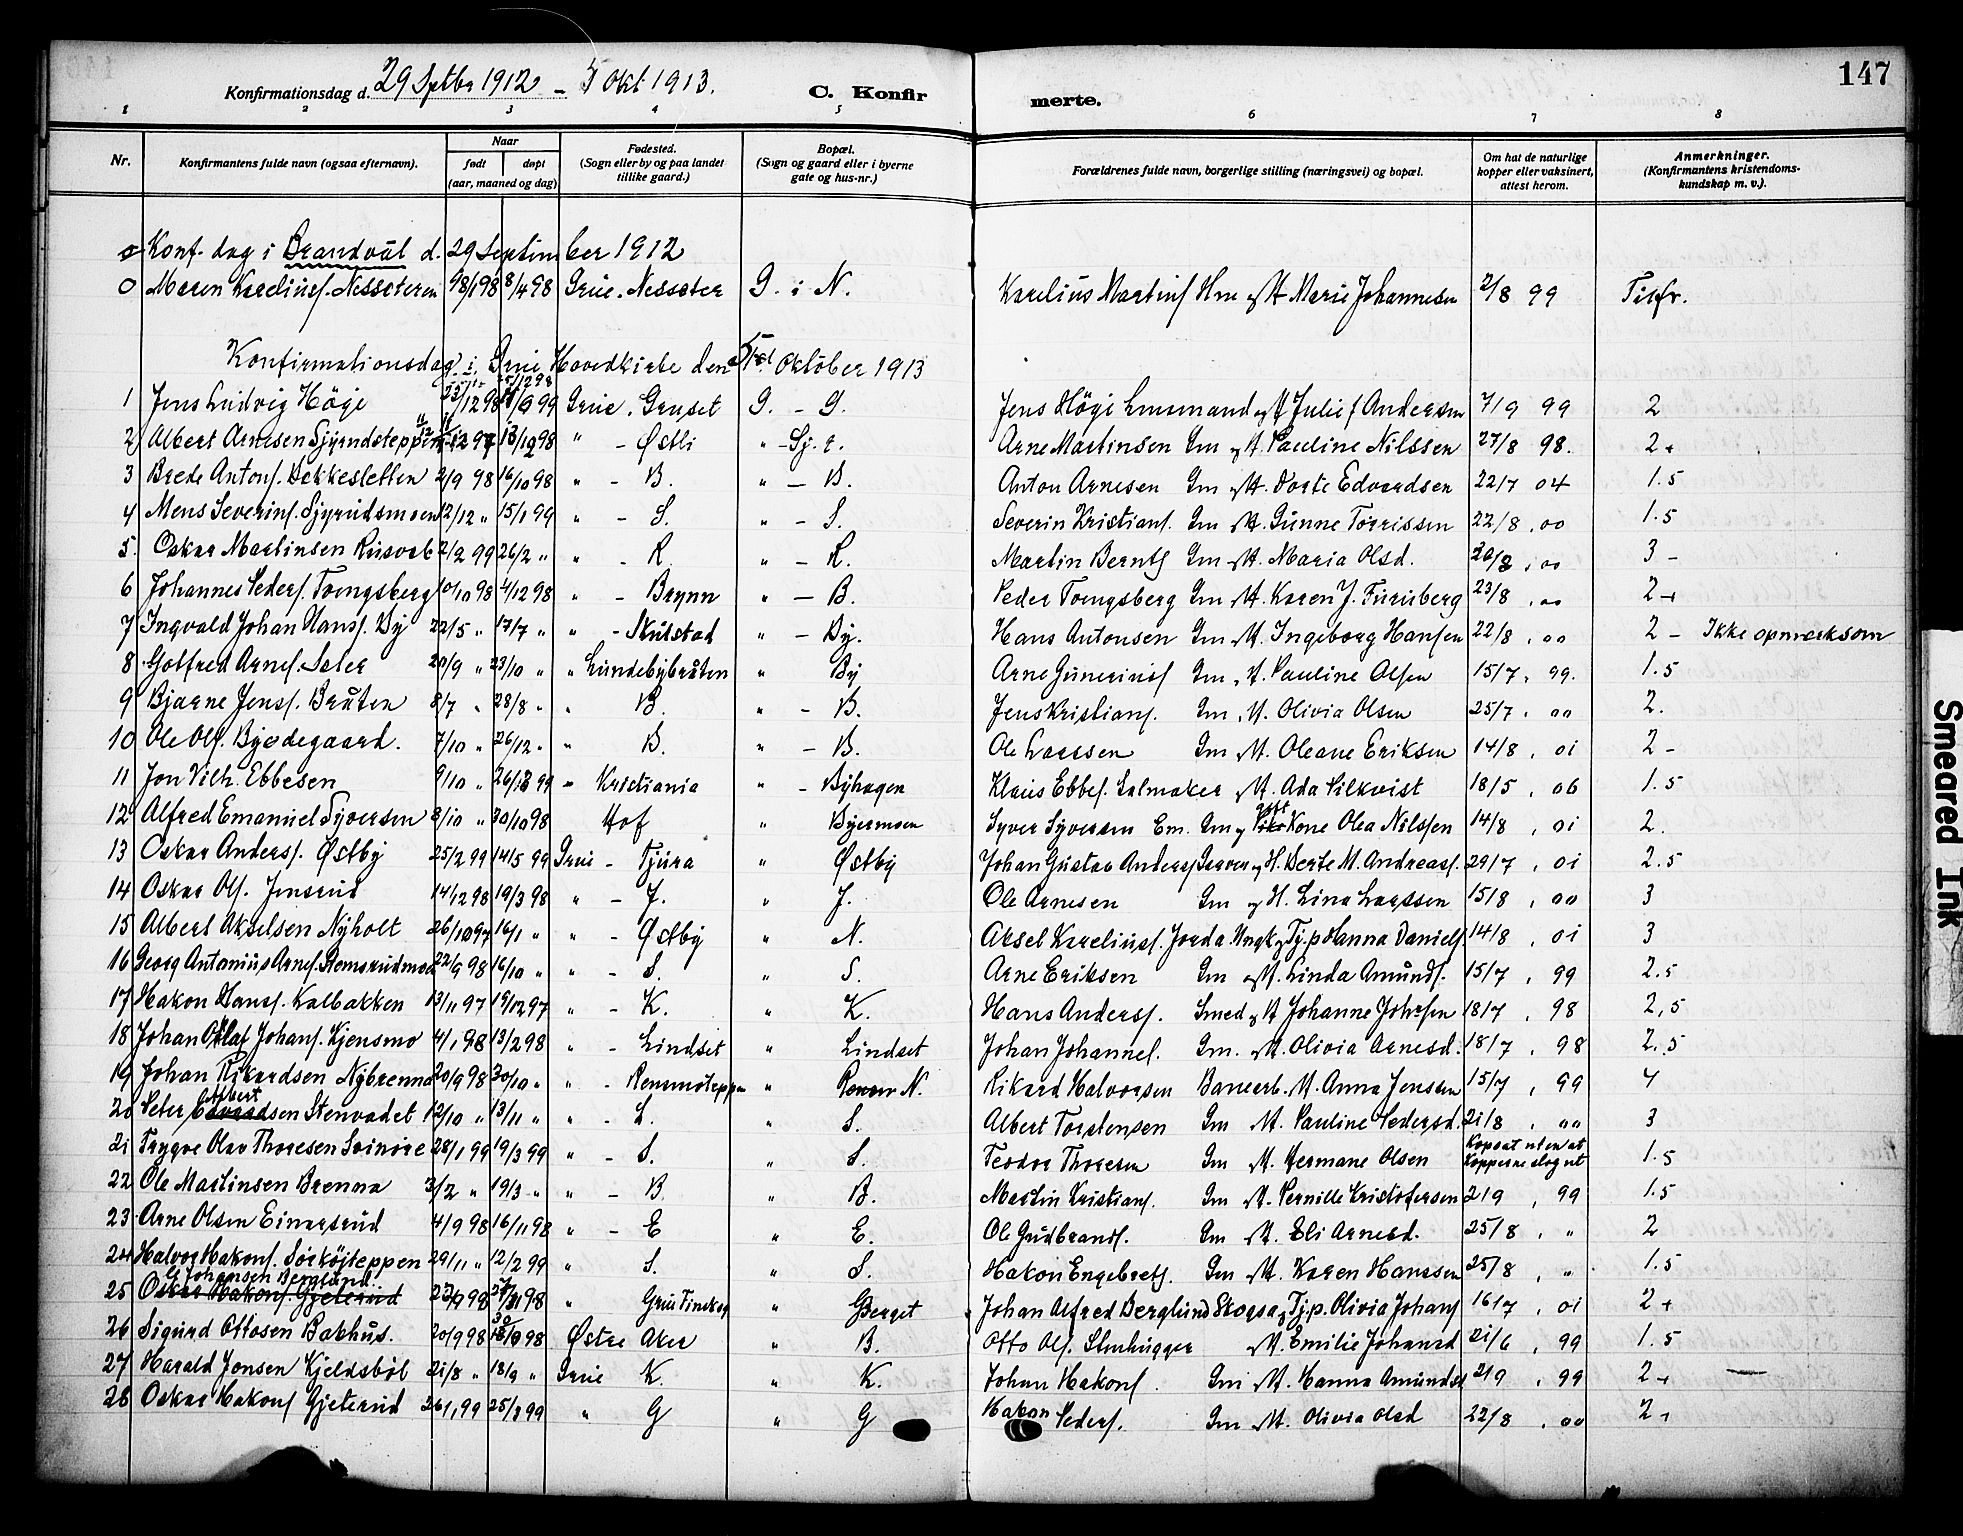 147
Konfirmationsdag d. 29 Septbr 1912 – 5 Okt 1913. C. Konfirmerte.
1 2 3 4 5 6 7 8
Nr. Konfirmantens fulde navn (ogsaa efternavn). Naar født døpt (aar, maaned og dag) Fødested. (Sogn eller by og paa landet tillike gaard.) Bopæl. (Sogn og gaard eller i byerne gate og hus-nr.) Forældrenes fulde navn, borgerlige stilling (næringsvei) og bopæl. Om hat de naturlige kopper eller vaksinert, attest herom. Anmerkninger. (Konfirmantens kristendoms-kundskap m. v.).
Konf. dag i Brandval d. 29 September 1912
0 Maren Kareliusf. Nessæteren 8/4 98 Grue. Nessæter G. i N. Karelius Martinsf Hm og H Marie Johannesen 2/8 99 Tilfr.
Konfirmationsdag i Grue Hovedkirke den 5te Oktober 1913
1 Jens Ludvig Høgi Grue. Gruset G. – G. Jens Høgi Lensmand og H Julie f Andersen 7/9 99 2
2 Albert Arnesen 98 " – Østli " – Arne Martinsen Gm og H. Pauline Nilssen 27/8 98. 2+
3 Brede Antonf. Bekkesletten 2/9 98 16/10 98 " – B. " – B. Anton Arnesen Gm og H. Dorte Edvardsen 22/7 04 1.5
4 Mens Severinf. Sjyrudsmoen 12/12 " 15/1 99 " – S. " – S. Severin Kristianf. Gm og H. Gunne Torrissen 22/8 . 00 1.5
5. Oskar Martinsen 2/2 99 26/2 " " – R. " – R. Martin Berntf Gm og H. Maria Olsd. . 00 3 –
6 Johannes Pederf. Tvengsberg 10/10 98 4/12 98 " – Brynn " – B. Peder Tvengsberg Gm og H. Karen J. Furuberg 23/8 . 00 2+
7 Ingvald Johan Hansf. By 22/5 " 17/7 " " – Skulstad " – By. Hans Antonsen Gm og H. Ingeborg Hansen 22/8 . 00 2 – Ikke opmerksom
8 Gotfred Arnef. Sæter 20/9 " 23/10 " " Lundebybråten " By Arne Gunerius Gm og H. Pauline Olsen 15/7 . 99. 1.5
9 Bjarne Jensf. Bråten 8/7 " 28/8 " " B. " – B. Jens Kristianf. Gm og H. Olivia Olsen 25/7 . 00 2.
10 Ole Olf. Byødegaard. 7/10 " 26/12 " " B. " – B. Ole Larssen Gm og H. Oleane Eriksen 14/8 . 01 2 –
11 Jon Vilh. Ebbesen 9/10 " 99 " Kristiania " – Byhagen Klaus Ebbef. Salmaker og H. Ada Silkvist 18/5 . 06 1.5
12 Alfred Emanuel Syversen 8/10 " 30/10 98 Hof " Byermoen Syver Syversen Em. Gm og Kone Olea Nilssen 14/8 . 01 2.
13 Oskar Andersf. Østby 25/2 99 14/5 99 Grue – Tjura " Østby Johan Gustav Andersf Graver og H. Berte M. Andreasf. 29/7 . 01 2.5
14 Oskar Olf. Jensrud 14/12 98 19/3 98 " – J. " J. Ole Arnesen Gm og H. Lina Larssen 15/8 . 00 3
15 Albert Akselsen Nyholt 26/10 97 16/1 " " – Østby " N. Aksel Kareliusf. Jorda. Ungk og Tj.p Hanna Danielf. 14/8 . 01 3
16 Georg Antonius Arnef. 22/9 98 16/10 " " – S. " S. Arne Eriksen Gm og H. Linda Amundf. 15/7 . 99 2.5
17 Hakon Hansf. Kalbakken 13/11 97 19/12 97 " – K. " K. Hans Andersf. Smed og H Johanne Johnsen 18/7 . 98 2,5
18 Johan Olaf Johanf. Kjensmo 4/1 98 13/2 98 " – Lindset " Lindset Johan Johannef. Gm. og H. Olivia Arnesd. 18/7 . 98 2.5
19 Johan Rikardsen Nybrenna 20/9 98 30/10 " " – Rensmoteppen " N. Rikard Halvorsen Banearb. H. Anna Jenssen 15/7 . 99 4
20 Peter Albert Edvardsen Stenvadet 12/10 " 13/11 " " – S. " S. Albert Torstensen Gm og H. Pauline Pedersd. 21/8 . "" 3
21 Trygve Olav Thoresen 28/1 99 19/3 99 " – S. " S. Teodor Thoresen Gm og H. Hermane Olsen Kopsat uten at kopperne slog ut 1.5
22 Ole Martinsen Brenna 3/2 " 19/3 " " – B. " B. Martin Kristianf. Gm og H. Pernille Kristofersen 2/9 . 99 1.5
23 Arne Olsen Einarsrud 4/9 98 16/11 98 " – E " E. Ole Gudbrandf. Gm og H. Eli Arnesd. 25/8 . " 2
24 Halvor Hakonf. Sørkøjteppen 29/11 " 12/2 99 " S. " S. Hakon Engebretf. Gm og H. Karen Hanssen 25/8 . " 1.5
25 G Johansen Berglund. Oskar Hakonf Gjeterud 98 " Grue Finskog " Berget Johan Alfred Berglund Skogsa. og Tj.p. Olivia Johanf 16/7 . 01 2+
26 Sigurd Ottosen Bakhus. 20/9 98 98 Østre Aker " B. Otto Olf. Stenhugger og H. Emilie Johansd 21/6 . 99 1.5
27 Harald Jonsen Kjeldsbøl 21/8 " 18/9 " Grue K. " K. Johan Hakonf. Gm og H. Hanna Amundsd 2/9 . 99 2+ —
28 Oskar Hakonf Gjeterud 26/1 99 25/3 99 " G " G Hakon Pederf. Gm og H. Olivia Olsd 22/8 . 00 2+
Smeared Ink